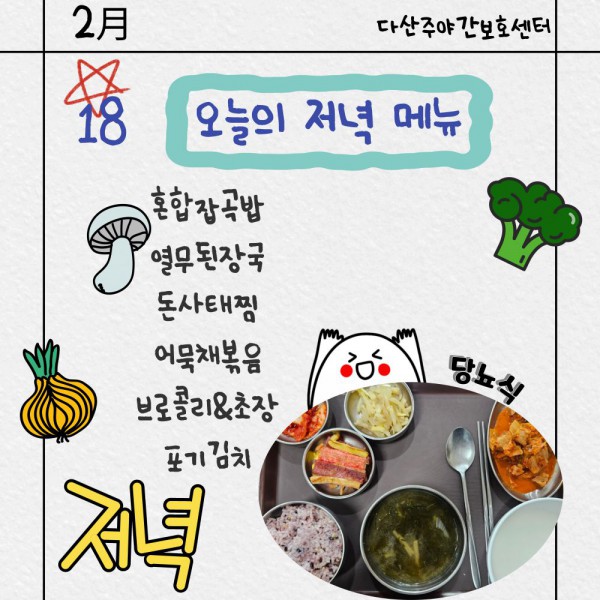 2月
다산주야간보호센터
18
오늘의 저녁 메뉴
혼합잡곡밥
열무된장국
돈사태찜
어묵채볶음
브로콜리&초장
포기김치
당뇨식
저녁